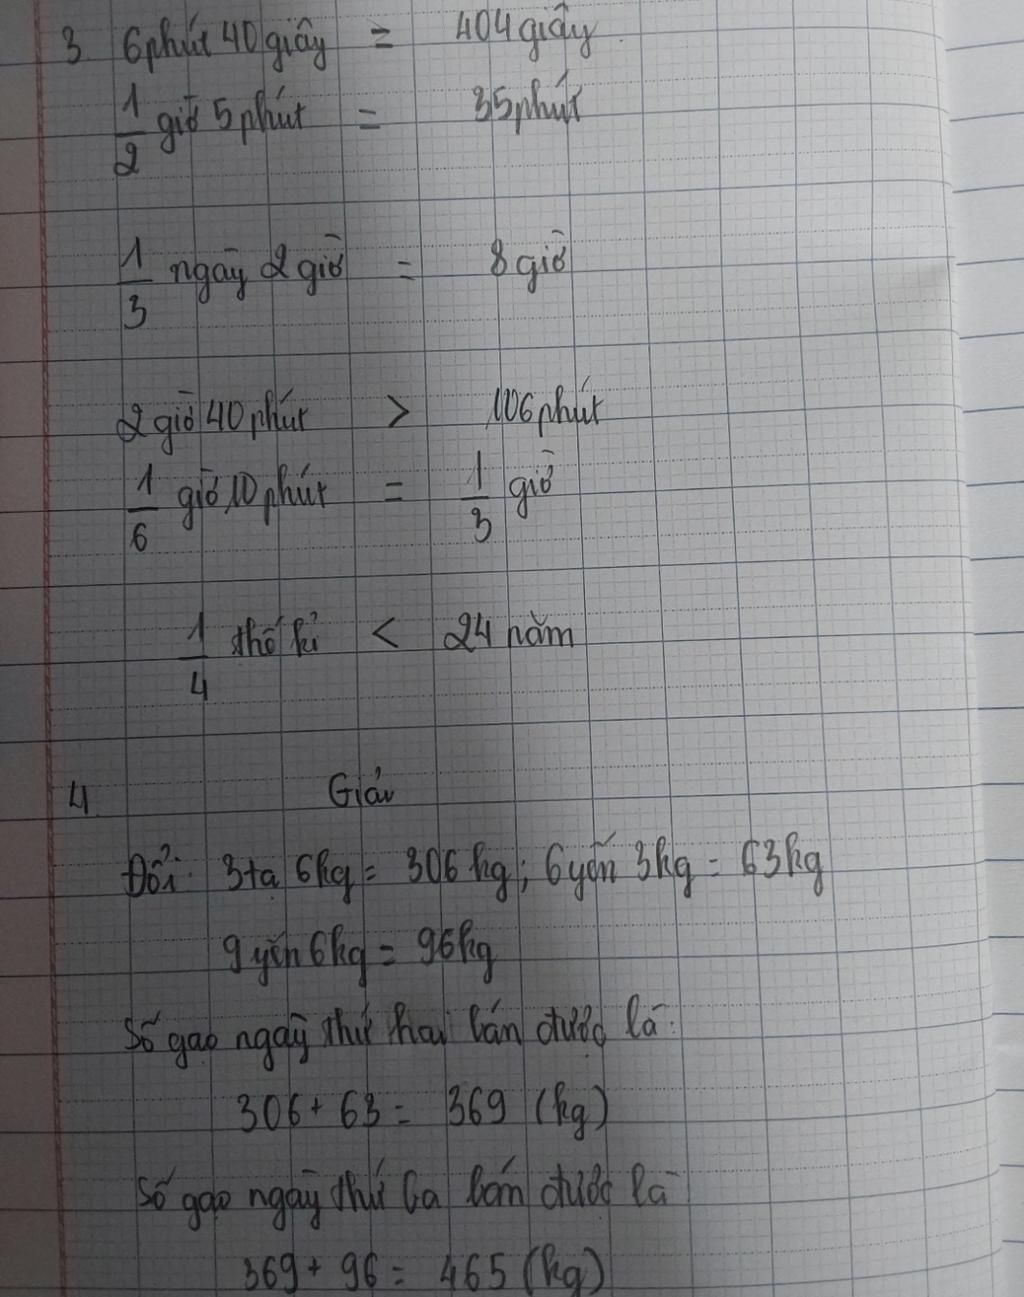 3. 6phút 40 giây = 404 giây.
1/2 giờ 5 phút = 35 phút
1/3 ngày 2 giờ = 8 giờ
2 giờ 40 phút > 106 phút
1/6 giờ 10 phút = 1/3 giờ
1/4 thế kỉ < 24 năm
4. Giải
Đổi: 3 tạ 6kg = 306 kg; 6 yến 3kg = 63kg
9 yến 6kg = 96kg
Số gạo ngày thứ hai bán được là:
306 + 63 = 369 (kg)
Số gạo ngày thứ ba bán được là
369 + 96 = 465 (kg)